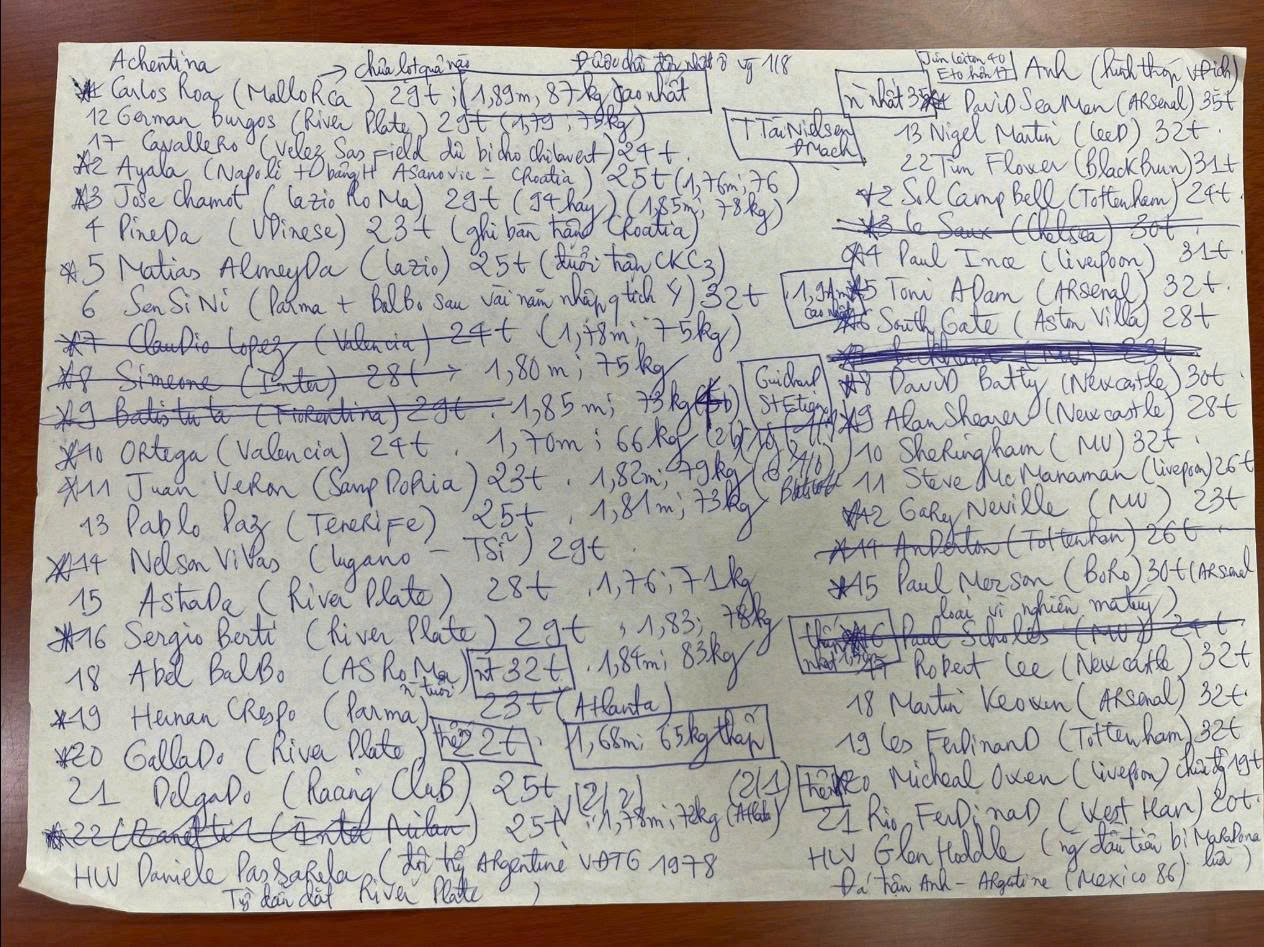 Achentina
→ chưa lọt quả nào
1 Carlos Roa (Mallorca) 29t; 1,89m, 87kg cao nhất
12 German Burgos (River Plate) 29t (1,79; 79kg)
17 Cavallero (Velez Sas Field dù bị cho Chilavert) 24t.
2 Ayala (Napoli + Asanovic - Croatia) 25t (1,76m; 76)
3 Jose Chamot (Lazio RoMa) 29t (94 hay) (1,85m; 78kg)
4 PineDa (UDinese) 23t (ghi bàn trận Croatia)
5 Matias AlmeyDa (Lazio) 25t (đuổi trận CKC3)
6 SenSiNi (Parma + BalBo sau vài năm nhập q tịch Ý) 32t
7 ClauDio Lopez (Valencia) 24t (1,78m; 75kg)
8 Simeone (Inter) 28t → 1,80m; 75kg
9 Batistuta (Fiorentina) 29t. 1,85m; 73kg
10 Ortega (Valencia) 24t. 1,70m; 66kg
11 Juan Veron (SampDoRia) 23t. 1,82m; 79kg
13 Pablo Paz (TeneRiFe) 25t. 1,81m; 73kg
14 Nelson Vivas (Lugano - TSĩ) 29t.
15 AstraDa (River Plate) 28t. 1,76; 71kg
16 Sergio Berti (River Plate) 29t, 1,83; 78kg
18 Abel BalBo (AS RoMa) n 32t. 1,84m; 83kg
n tuổi
19 Hernan CRespo (Parma) 23t (Atlanta)
20 GallaDo (River Plate) trẻ 22t. 1,68m; 65kg thấp
21 DelgaDo (Racing CluB) 25t (2/2) (2/1)
22 Zanetti (Inter Milan) 25t. 1,78m; 72kg
HLV Daniele PasSaRela (đội trg ARgentine VĐTG 1978
Từ dẫn dắt River Plate)
TTài Nielsen
ĐMạch
Guichard
StEtiene
Anh (hình tháp VĐịch)
n nhất 35t 1 DaviD SeaMan (ARsenal) 35t
13 Nigel Martin (LeeD) 32t.
22 Tim Flower (BlackBurn) 31t
2 Sol CampBell (Tottenham) 24t.
3 Le Saux (Chelsea) 30t.
4 Paul Ince (Liverpoon) 31t
1,94m
cao nhất
5 Toni ADam (ARsenal) 32t.
6 SouthGate (Aston Villa) 28t
7 Beckham (MU) 23t
8 DaviD Batty (Newcastle) 30t
9 Alan Shearer (Newcastle) 28t
10 SheRingham (MU) 32t.
11 Steve McManaman (Livepoon) 26t
12 GaRy Neville (MU) 23t
14 AnDerton (Tottenham) 26t.
15 Paul MeRson (BoRo) 30t (ARsenal
loại vì nghiện ma túy)
16 Paul Scholes (MU) 24t
17 RoBert Lee (Newcastle) 32t
18 Martin Keown (ARsenal) 32t.
19 Les FerDinanD (Tottenham) 32t
trẻ 20 Micheal Owen (Livepoon) 19t
21 Rio FerDinaD (West Ham) 20t.
HLV Glen HoDDle (ng đầu tiên bị MaRaDona lừa)
Đá trận Anh - ARgentine (Mexico 86)